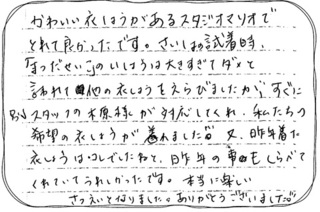 かわいい衣しょうがあるスタジオマリオで
とれて良かったです。さいしょの試着時、
「まっだせい」のいしょうは大きすぎてダメと
言われて他の衣しょうをえらびましたが、すぐに
別スタッフの木原様が対応してくれ、私たちの
希望の衣しょうが着れました。又、昨年着た
衣しょうはコレでしたねと、昨年の事もしらべて
くれていてうれしかったです。本当に楽しい
さつえいとなりました。ありがとうございました。